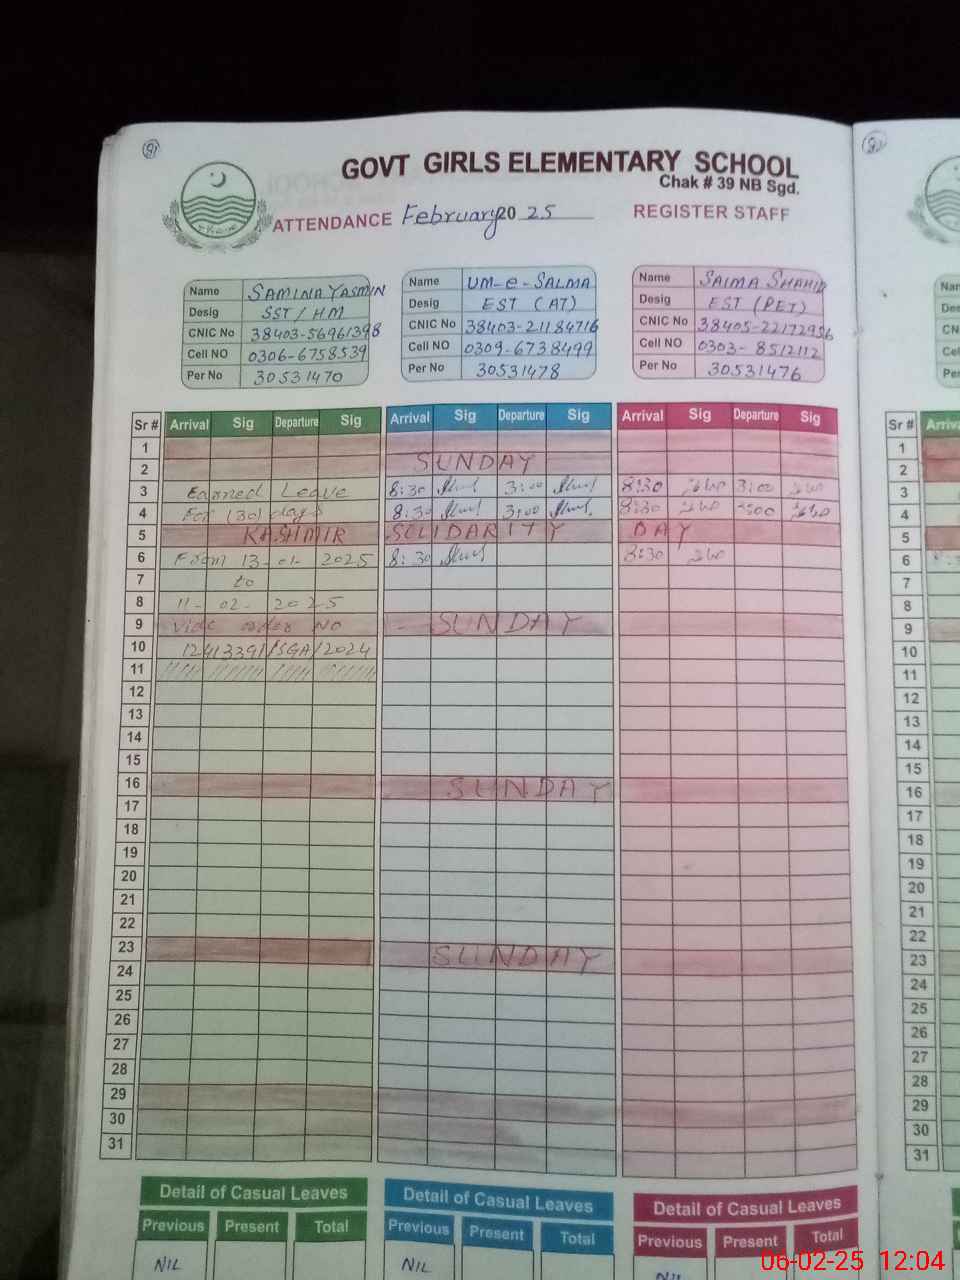 81
GOVT GIRLS ELEMENTARY SCHOOL
Chak # 39 NB Sgd.
ATTENDANCE February 2025 REGISTER STAFF
Name SAMINA YASMIN Name UM-e-SALMA Name SAIMA SHAHID
Desig SST/HM Desig EST (AT) Desig EST (PET)
CNIC No 38403-56961398 CNIC No 38403-21184716 CNIC No 38405-22172956
Cell NO 0306-6758539 Cell NO 0309-6738499 Cell NO 0303-8512112
Per No 30531470 Per No 30531478 Per No 30531476
Sr # Arrival Sig Departure Sig Arrival Sig Departure Sig Arrival Sig Departure Sig Sr #
1 1
2 SUNDAY 2
3 Earned Leave 8:30 3:00 8:30 3:00 3
4 For (30) days 8:30 3:00 8:30 3:00 4
5 KASHMIR SOLIDARITY DAY 5
6 From 13-01-2025 8:30 8:30 6
7 to 7
8 11-02-2025 8
9 Vide order No SUNDAY 9
10 12413391/SGA/2024 10
11 11
12 12
13 13
14 14
15 15
16 SUNDAY 16
17 17
18 18
19 19
20 20
21 21
22 22
23 SUNDAY 23
24 24
25 25
26 26
27 27
28 28
29 29
30 30
31 31
Detail of Casual Leaves Detail of Casual Leaves Detail of Casual Leaves
Previous Present Total Previous Present Total Previous Present Total
NIL NIL NIL
06-02-25 12:04